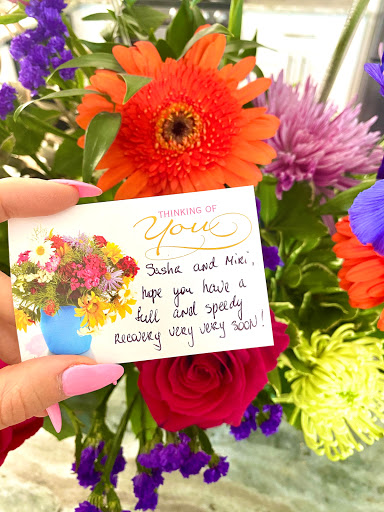 THINKING OF
You
Sasha and Miki,
hope you have a
full and speedy
recovery very very soon!